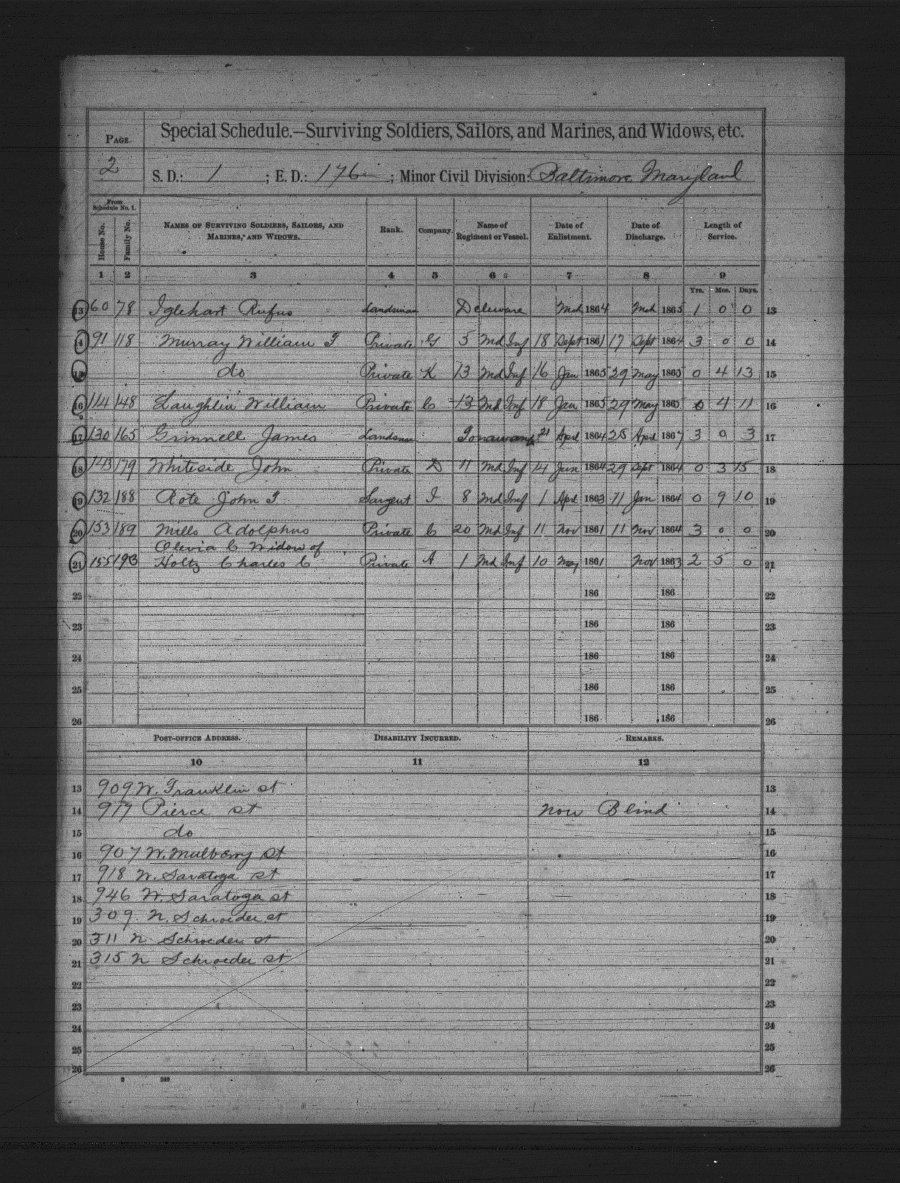 PAGE 2
Special Schedule.—Surviving Soldiers, Sailors, and Marines, and Widows, etc.
S. D.: 1 ; E. D.: 176 ; Minor Civil Division: Baltimore Maryland
From Schedule No. 1.
House No. Family No. NAMES OF SURVIVING SOLDIERS, SAILORS, AND MARINES, AND WIDOWS. Rank. Company. Name of Regiment or Vessel. Date of Enlistment. Date of Discharge. Length of Service.
1 2 3 4 5 6 7 8 9
Yrs. Mos. Days.
13 60 78 Iglehart Rufus Landsman Deleware Mch 1864 Mch 1865 1 0 0 13
14 91 118 Murray William T Private G 5 Md Inf 18 Sept 1861 17 Sept 1864 3 0 0 14
15 do Private K 13 Md Inf 16 Jan 1865 29 May 1865 0 4 13 15
16 114 148 Laughlin William Private C 13 Md Inf 18 Jan 1865 29 May 1865 0 4 11 16
17 130 165 Grinnell James Landsman 21 Apl 1864 25 Apl 1867 3 0 3 17
18 143 179 Whiteside John Private D 11 Md Inf 14 Jun 1864 29 Sept 1864 0 3 15 18
19 132 188 Rote John T Sargent I 8 Md Inf 1 Apl 1863 11 Jan 1864 0 9 10 19
20 153 189 Mills Adolphus Private C 20 Md Inf 11 Nov 1861 11 Nov 1864 3 0 0 20
Olevia C Widow of
21 155 193 Holtz Charles C Private A 1 Md Inf 10 May 1861 Nov 1863 2 5 0 21
22 186 186 22
23 186 186 23
24 186 186 24
25 186 186 25
26 186 186 26
POST-OFFICE ADDRESS. DISABILITY INCURRED. REMARKS.
10 11 12
13 909 W. Franklin st 13
14 917 Pierce st Now Blind 14
15 do 15
16 907 W. Mulberry st 16
17 918 W. Saratoga st 17
18 946 W. Saratoga st 18
19 309 N. Schroeder st 19
20 311 N Schroeder st 20
21 315 N Schroeder st 21
22 22
23 23
24 24
25 25
26 26